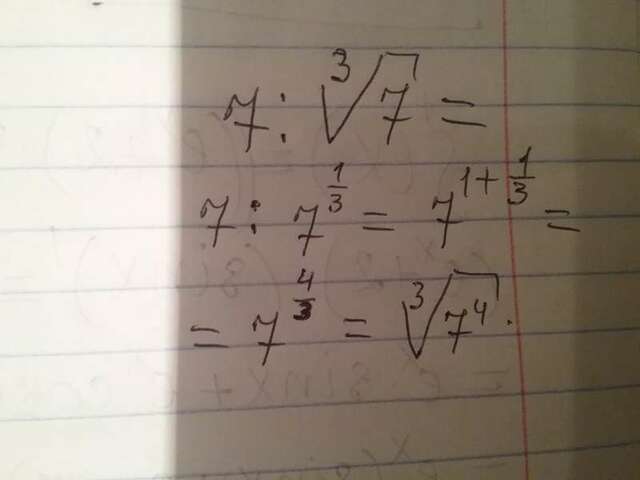 7 : ∛7 =
7 : 7^(1/3) = 7^(1 + 1/3) =
= 7^(4/3) = ∛(7⁴).